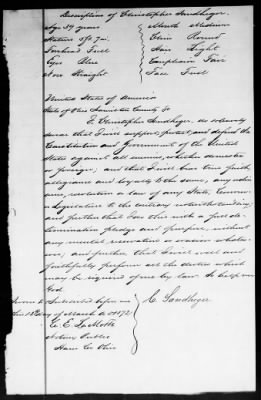 Description of Christopher Sandheger.
Age 59 years Mouth Medium
Stature 5 ft 7 in. Chin Round
Forehead Full Hair Light
Eyes Blue Complexion Fair
Nose Straight Face Full
United States of America
State of Ohio Hamilton County Ss
I, Christopher Sandheger, do solemnly
swear that I will support, protect, and defend the
Constitution and Government of the United
States against all enemies, whether domestic
or foreign; and that I will bear true faith,
allegiance and loyalty to the same, any ordin-
ance, resolution or law of any State, Convention
or Legislature to the contrary notwithstanding;
and further that I do this with a full de-
termination pledge and purpose, without
any mental reservation or evasion whatso-
ever; and further that I will well and
faithfully perform all the duties which
may be required of me by law. So help me
God.
Sworn to & Subscribed before me C. Sandheger
this day of March A.D. 1872
Notary Public
Ham. Co. Ohio